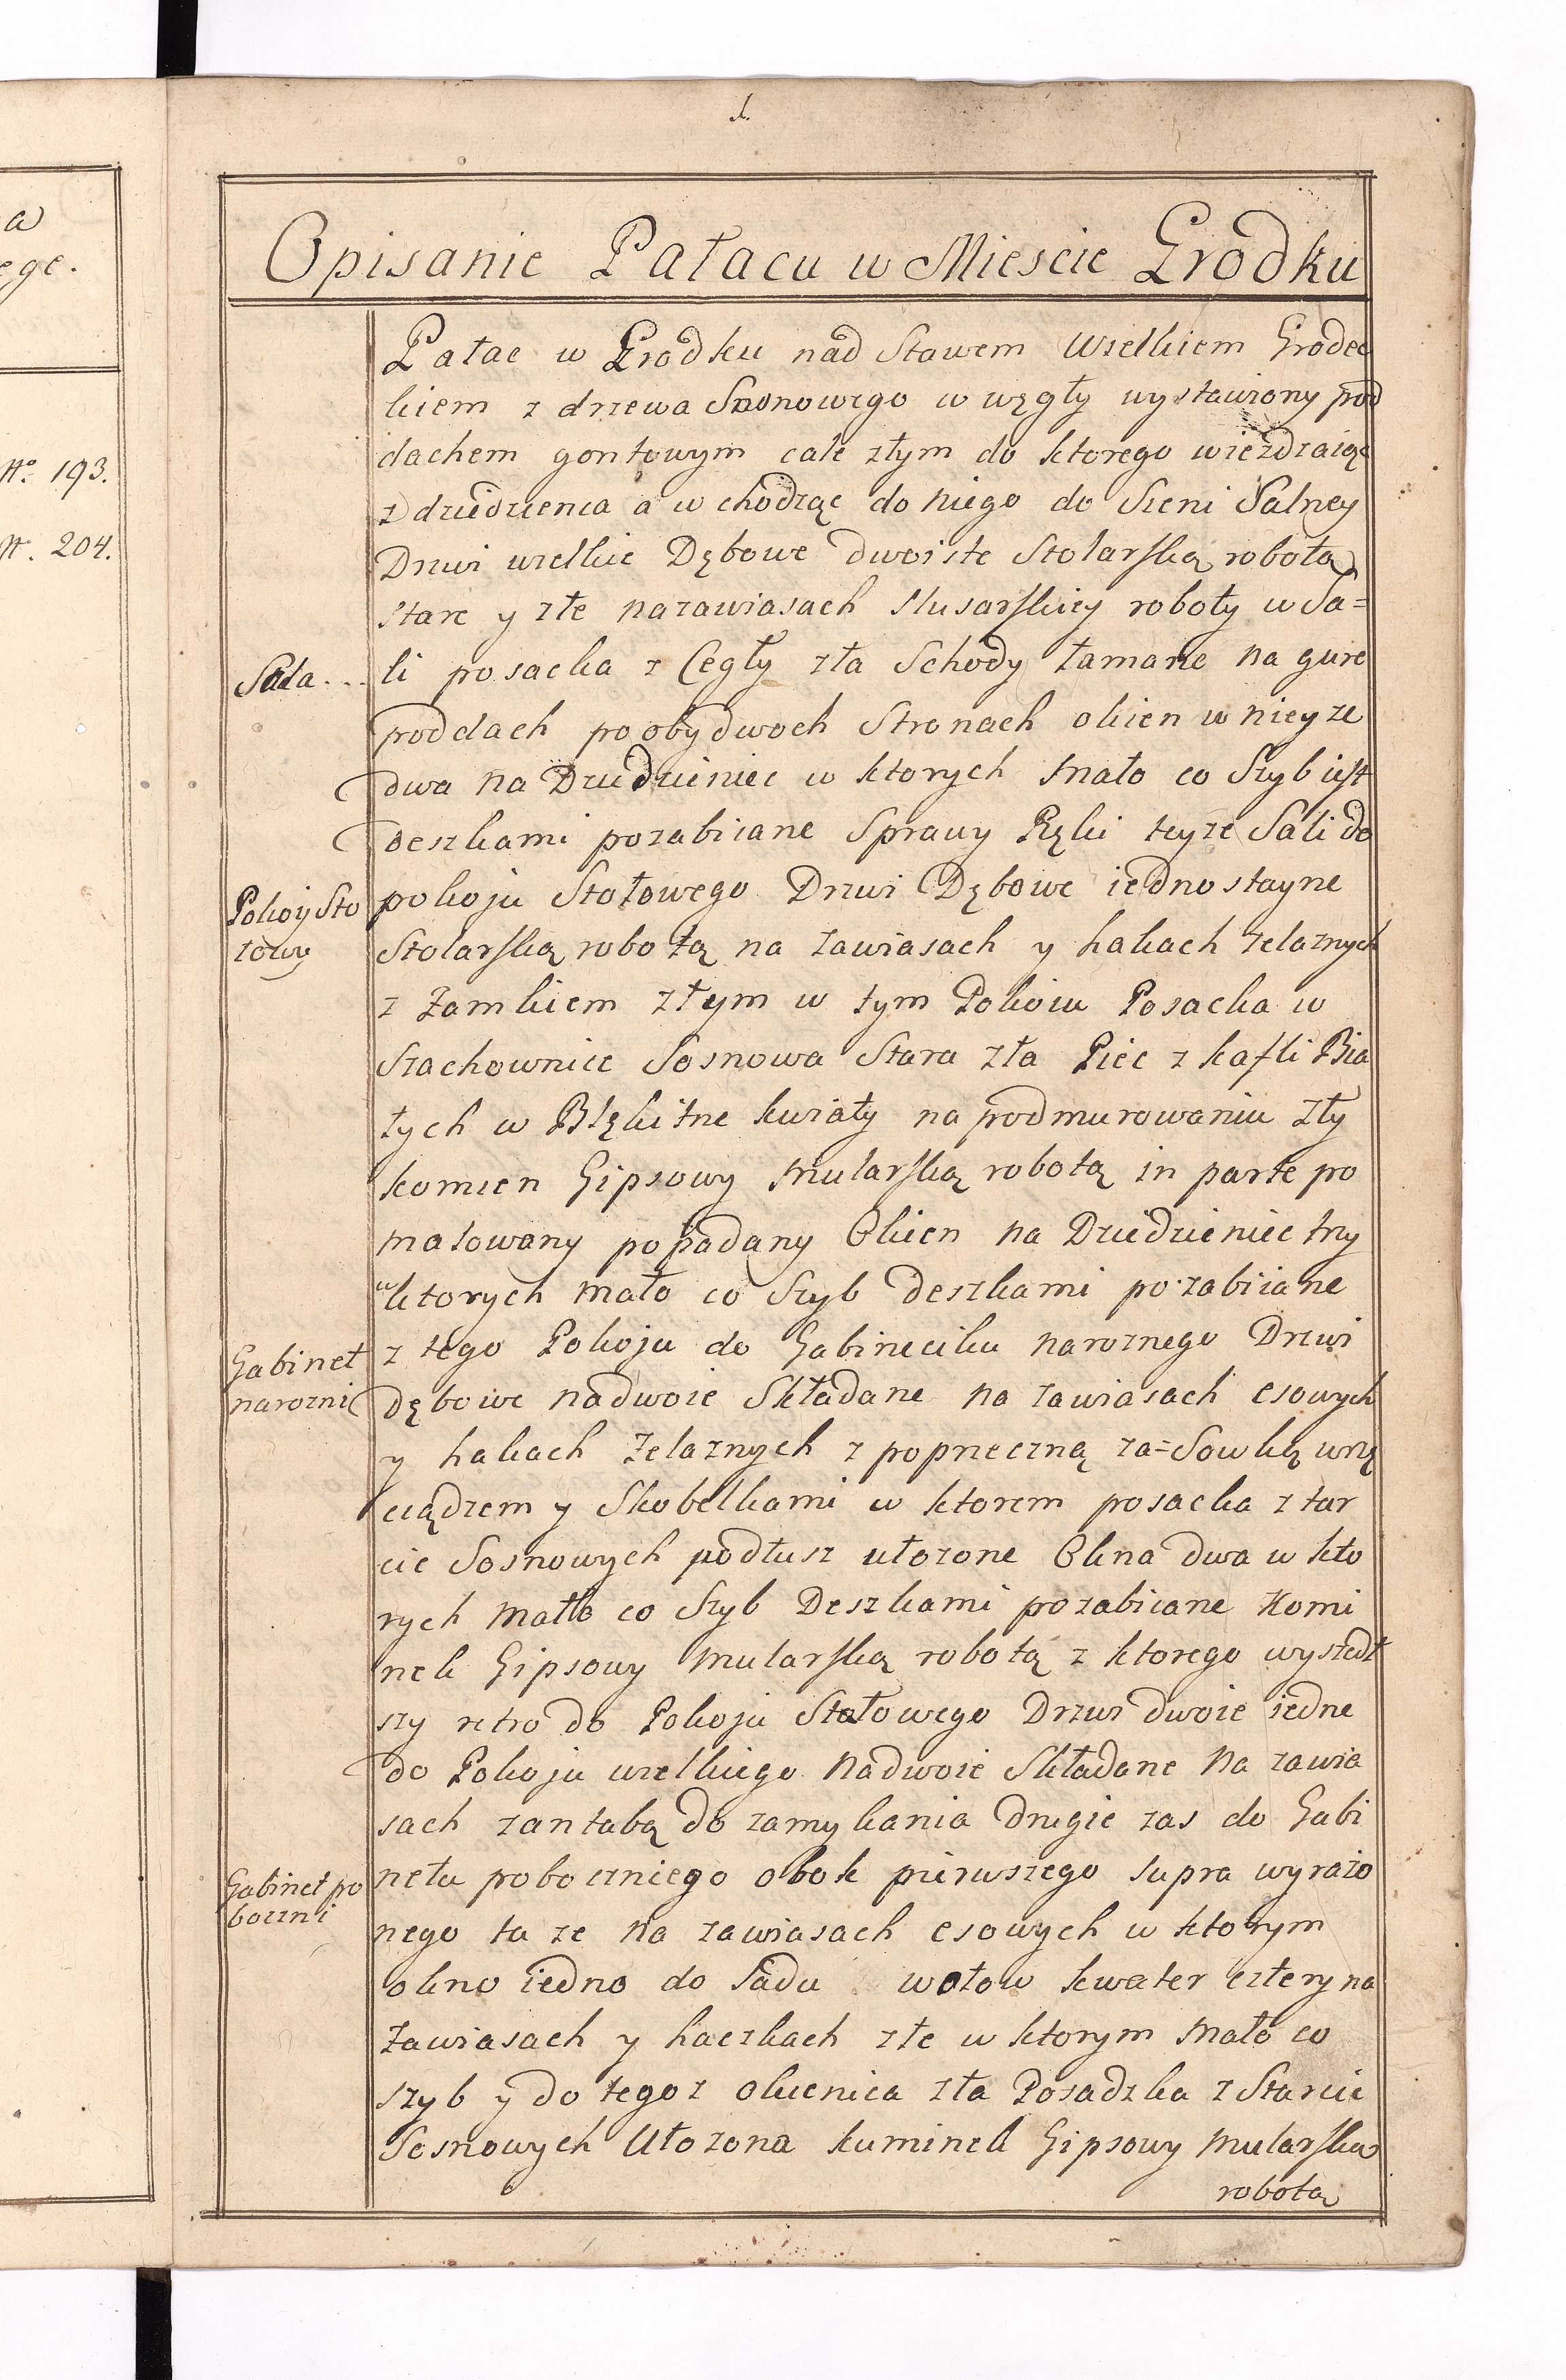 a
ege.
N° 193.
N. 204.
1.
Opisanie Pałacu w Miescie Grodku
Pałac w Grodku nad Stawem Wielkiem Grodec
kiem z drzewa Sosnowego w węgły wystawiony pod
dachem gontowym cale złym do ktorego wieżdzaiąc
z dziedzienca a w chodząc do niego do Sieni Salney
Drzwi wielkie Dębowe dwoiste Stolarską robotą
stare y złe nazawiasach slusarskiey roboty w Sa=
Sala... li posacka z Cegły zła Schody łamane na gure
pod dach po obydwoch Stronach okien w niey ze
dwa na Dziedziniec w ktorych mało co Szyb iest
deszkami pozabiiane Sprawy Ręki teyze Sali do
Pokoy Sto pokoju Stołowego Drzwi Dębowe iednostayne
łowy Stolarską robotą na zawiasach y hakach zelaznych
z Zamkiem złym w tym Pokoiu Posacka w
Szachownice Sosnowa Stara zła Piec z kafli Bia
łych w Błękitne kwiaty na podmurowaniu zły
komien Gipsowy mularską robotą in parte po
malowany popadany Okien na Dziedziniec trzy
w ktorych mało co Szyb deszkami pozabiiane
Gabinet z tego Pokoju do Gabineciku naroznego Drzwi
narozni dębowe nadwoie Składane na zawiasach esowych
y hakach zelaznych z poprzeczną za=Sowką wrzę
ciądzem y Skobelkami w ktorem posacka z tar
cic Sosnowych podłusz ułozone Okna dwa w kto
rych mało co Szyb Deszkami pozabiiane Komi
nek Gipsowy mularską robotą z ktorego wyszedł
szy retro do Pokoju Stołowego Drzwi dwoie iedne
do Pokoju wielkiego nadwoie Składane na zawia
sach zantabą do zamykania drugie zas do Gabi
Gabinet po netu poboczniego obok pierwszego supra wyrażo
boczni nego ta ze na zawiasach esowych w ktorym
okno iedno do Sadu wołow kwater cztery na
zawiasach y haczkach złe w ktorym mało co
szyb y do tegoz okienica zła Posadzka z Starcic
Sosnowych Ułozona kuminek Gipsowy mularską
robotą